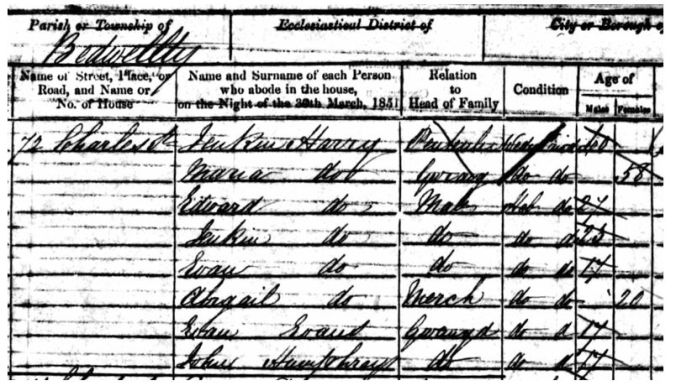 Parish or Township of Ecclesiastical District of City or Borough of
Bedwellty
Name of Street, Place, or Road, and Name or No. of House
Name and Surname of each Person who abode in the house, on the Night of the 30th March, 1851
Relation to Head of Family
Condition
Age of
Males Females
72 Charles St Jenkin Harry Penteulu
Maria do Gwraig do do 58
Edward do Mab do 27
Jenkin do do do
Evan do do do do 17
Abigail do Merch do do 20
Evan Evans do 17
John Humphrays do do 17